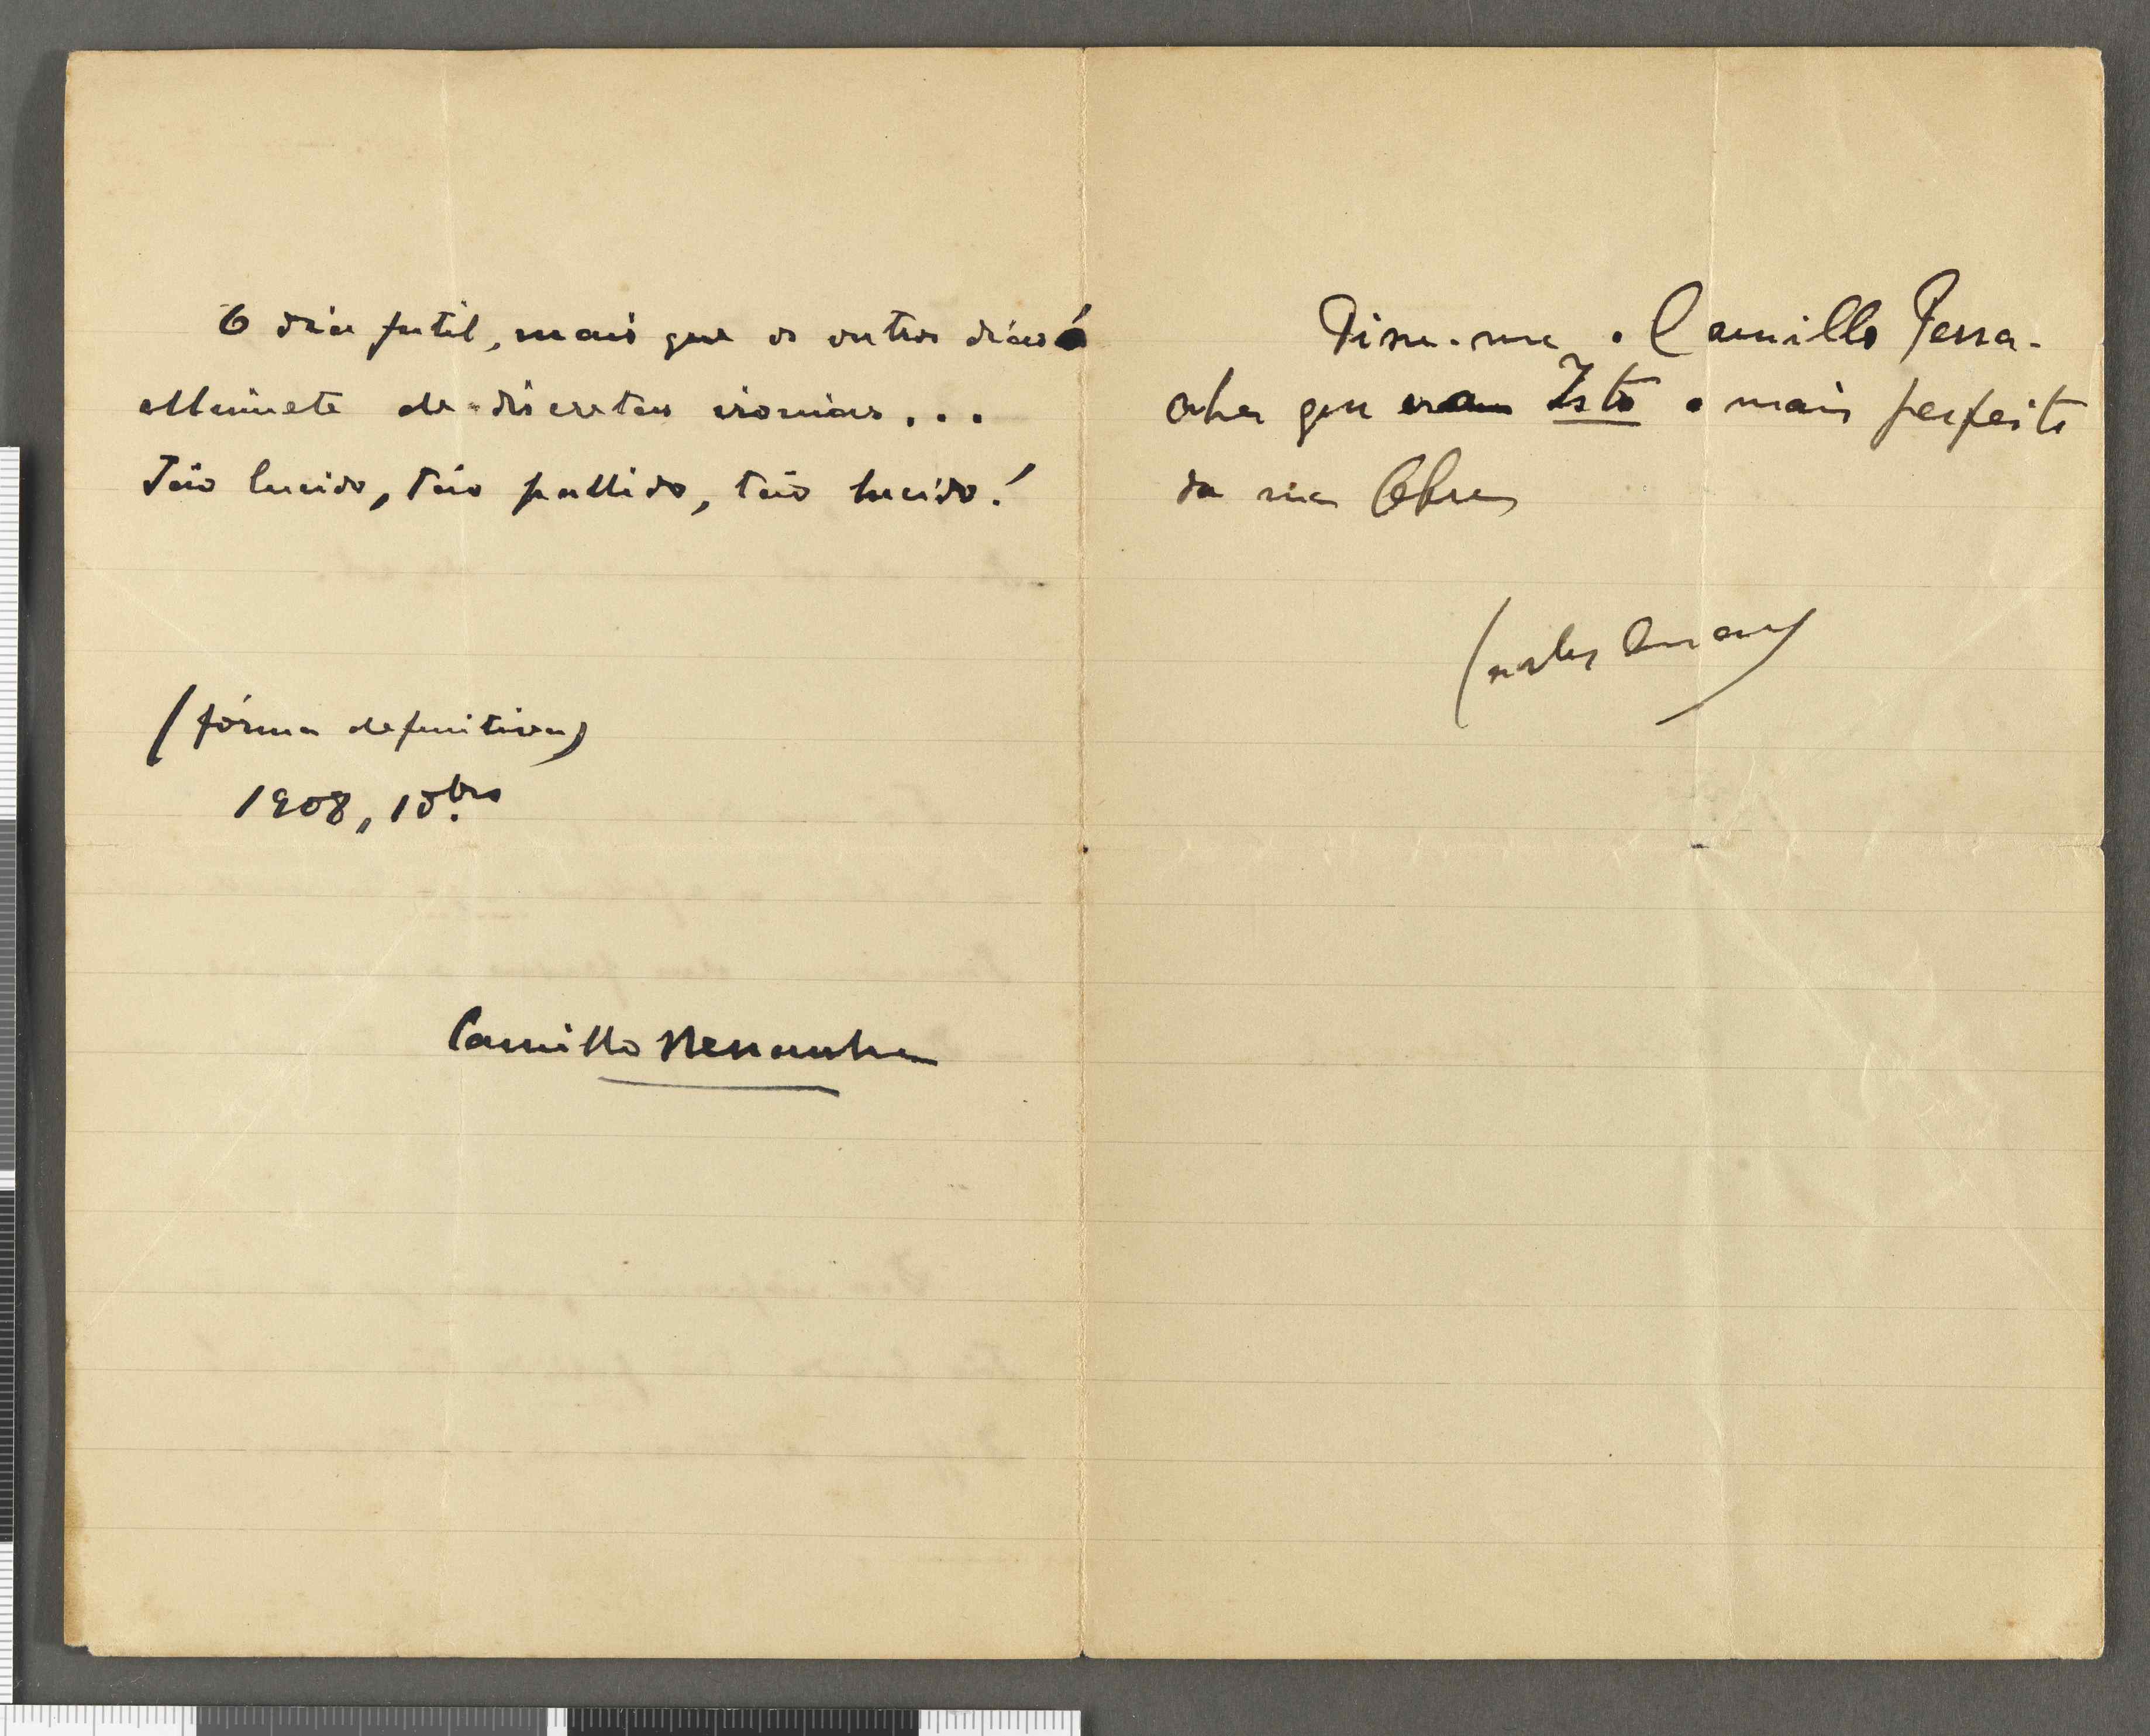 O dia futil, mais que os outros dias!
Minuete de discretas ironias...
Tão lucido, tão pallido, tão lucido!
(fórma definitiva)
1908, 10bro
Camillo Pessanha
Disse-me o Camillo Pessa-
nha que era Isto o mais perfeito
da sua Obra
(nota